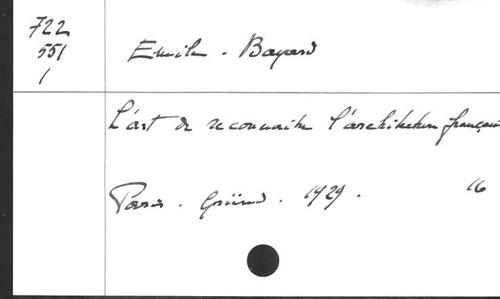 722
551
1
Emile - Bayard
L'art de reconnaitre l'architecture français
Paris - Gründ - 1929 - 16